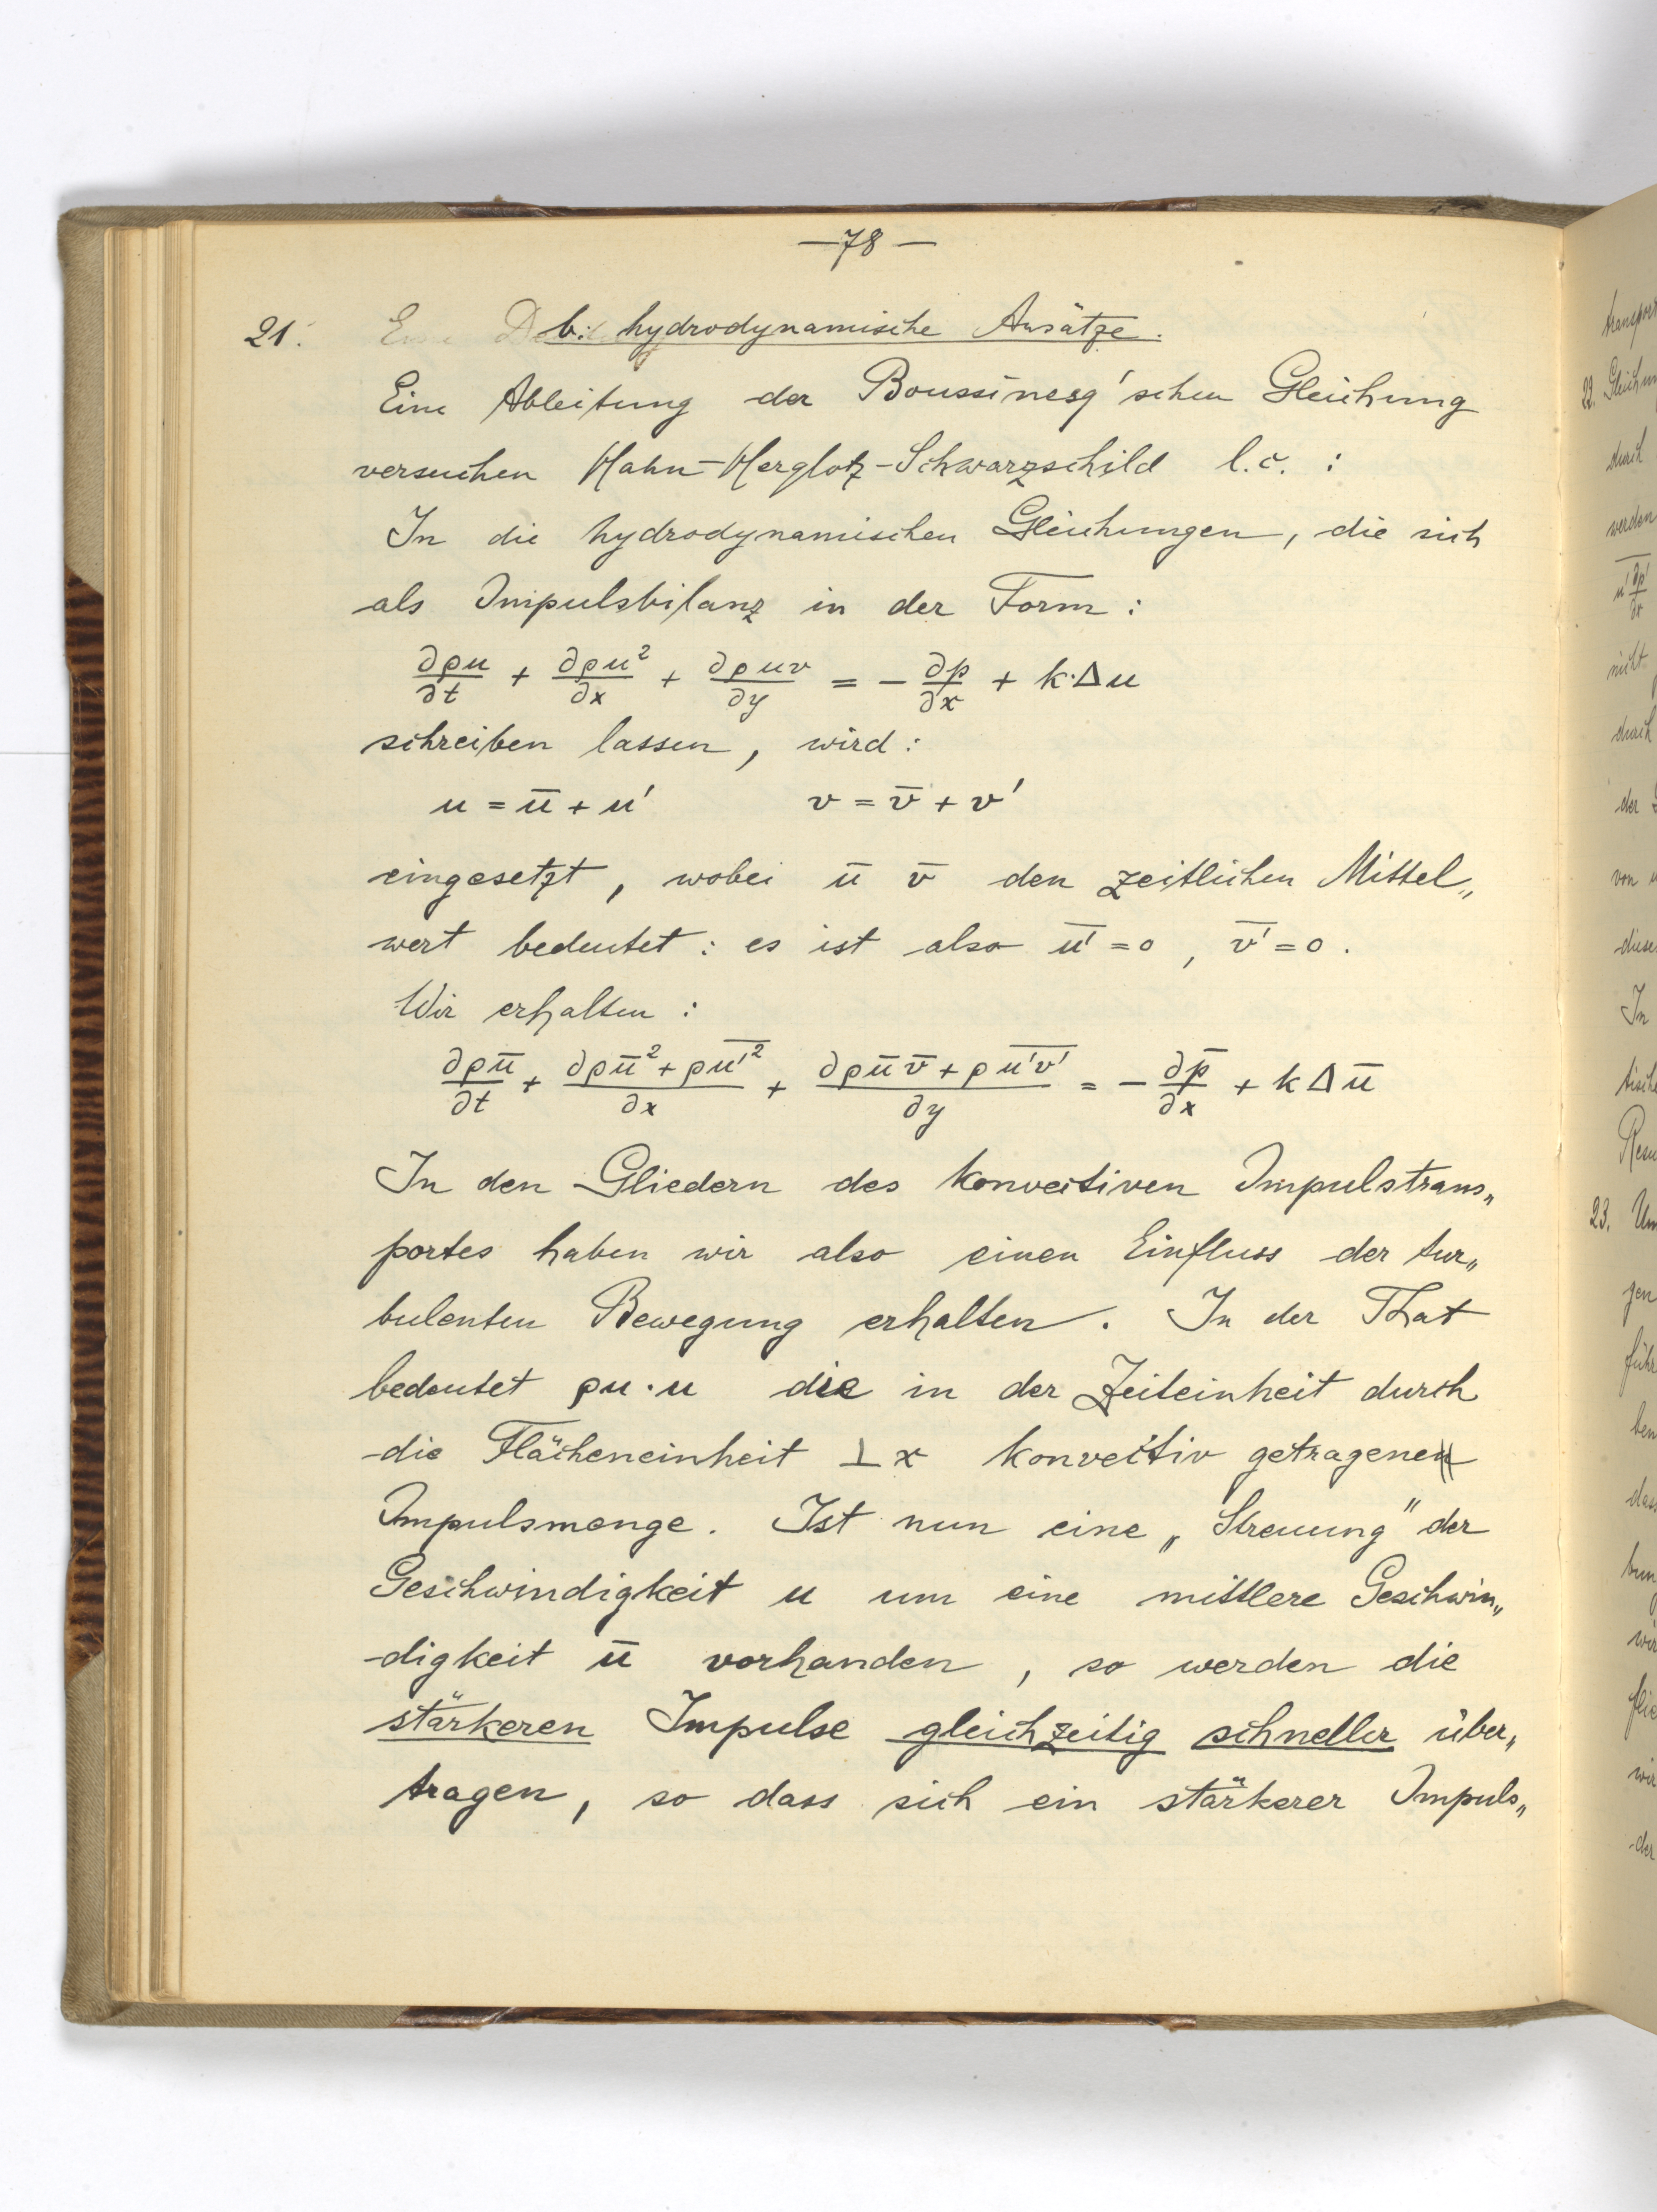 —78—
21. b: hydrodynamische Ansätze.
Eine Ableitung der Boussinesq'schen Gleichung
versuchen Hahn-Herglotz-Schwarzschild l.c. :
In die hydrodynamischen Gleichungen, die sich
als Impulsbilanz in der Form :
∂ρu/∂t + ∂ρu²/∂x + ∂ρuv/∂y = − ∂p/∂x + k·Δu
schreiben lassen, wird :
u = ū + u' v = v̄ + v'
eingesetzt, wobei ū v̄ den zeitlichen Mittel„
wert bedeutet : es ist also u̅'̅ = 0, v̅'̅ = 0.
Wir erhalten :
∂ρū/∂t + ∂ρū² + ρu̅'̅²̅/∂x + ∂ρūv̄ + ρu̅'̅v̅'̅/∂y = − ∂p̄/∂x + kΔū
In den Gliedern des konvectiven Impulstrans„
portes haben wir also einen Einfluss der tur„
bulenten Bewegung erhalten. In der That
bedeutet ρu·u die in der Zeiteinheit durch
die Flächeneinheit ⊥ x konvectiv getragene
Impulsmenge. Ist nun eine „Streuung" der
Geschwindigkeit u um eine mittlere Geschwin„
digkeit ū vorhanden, so werden die
stärkeren Impulse gleichzeitig schneller über„
tragen, so dass sich ein stärkerer Impuls„
22.
durch
werden
durch
der
von
In
23.